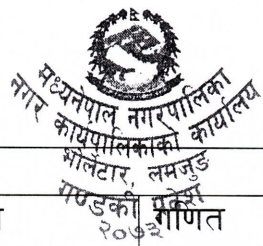 मध्यनेपाल नगरपालिका
नगर कार्यपालिकाको कार्यालय
भोर्लेटार, लमजुङ
गण्डकी प्रदेश
२०७३
गणित